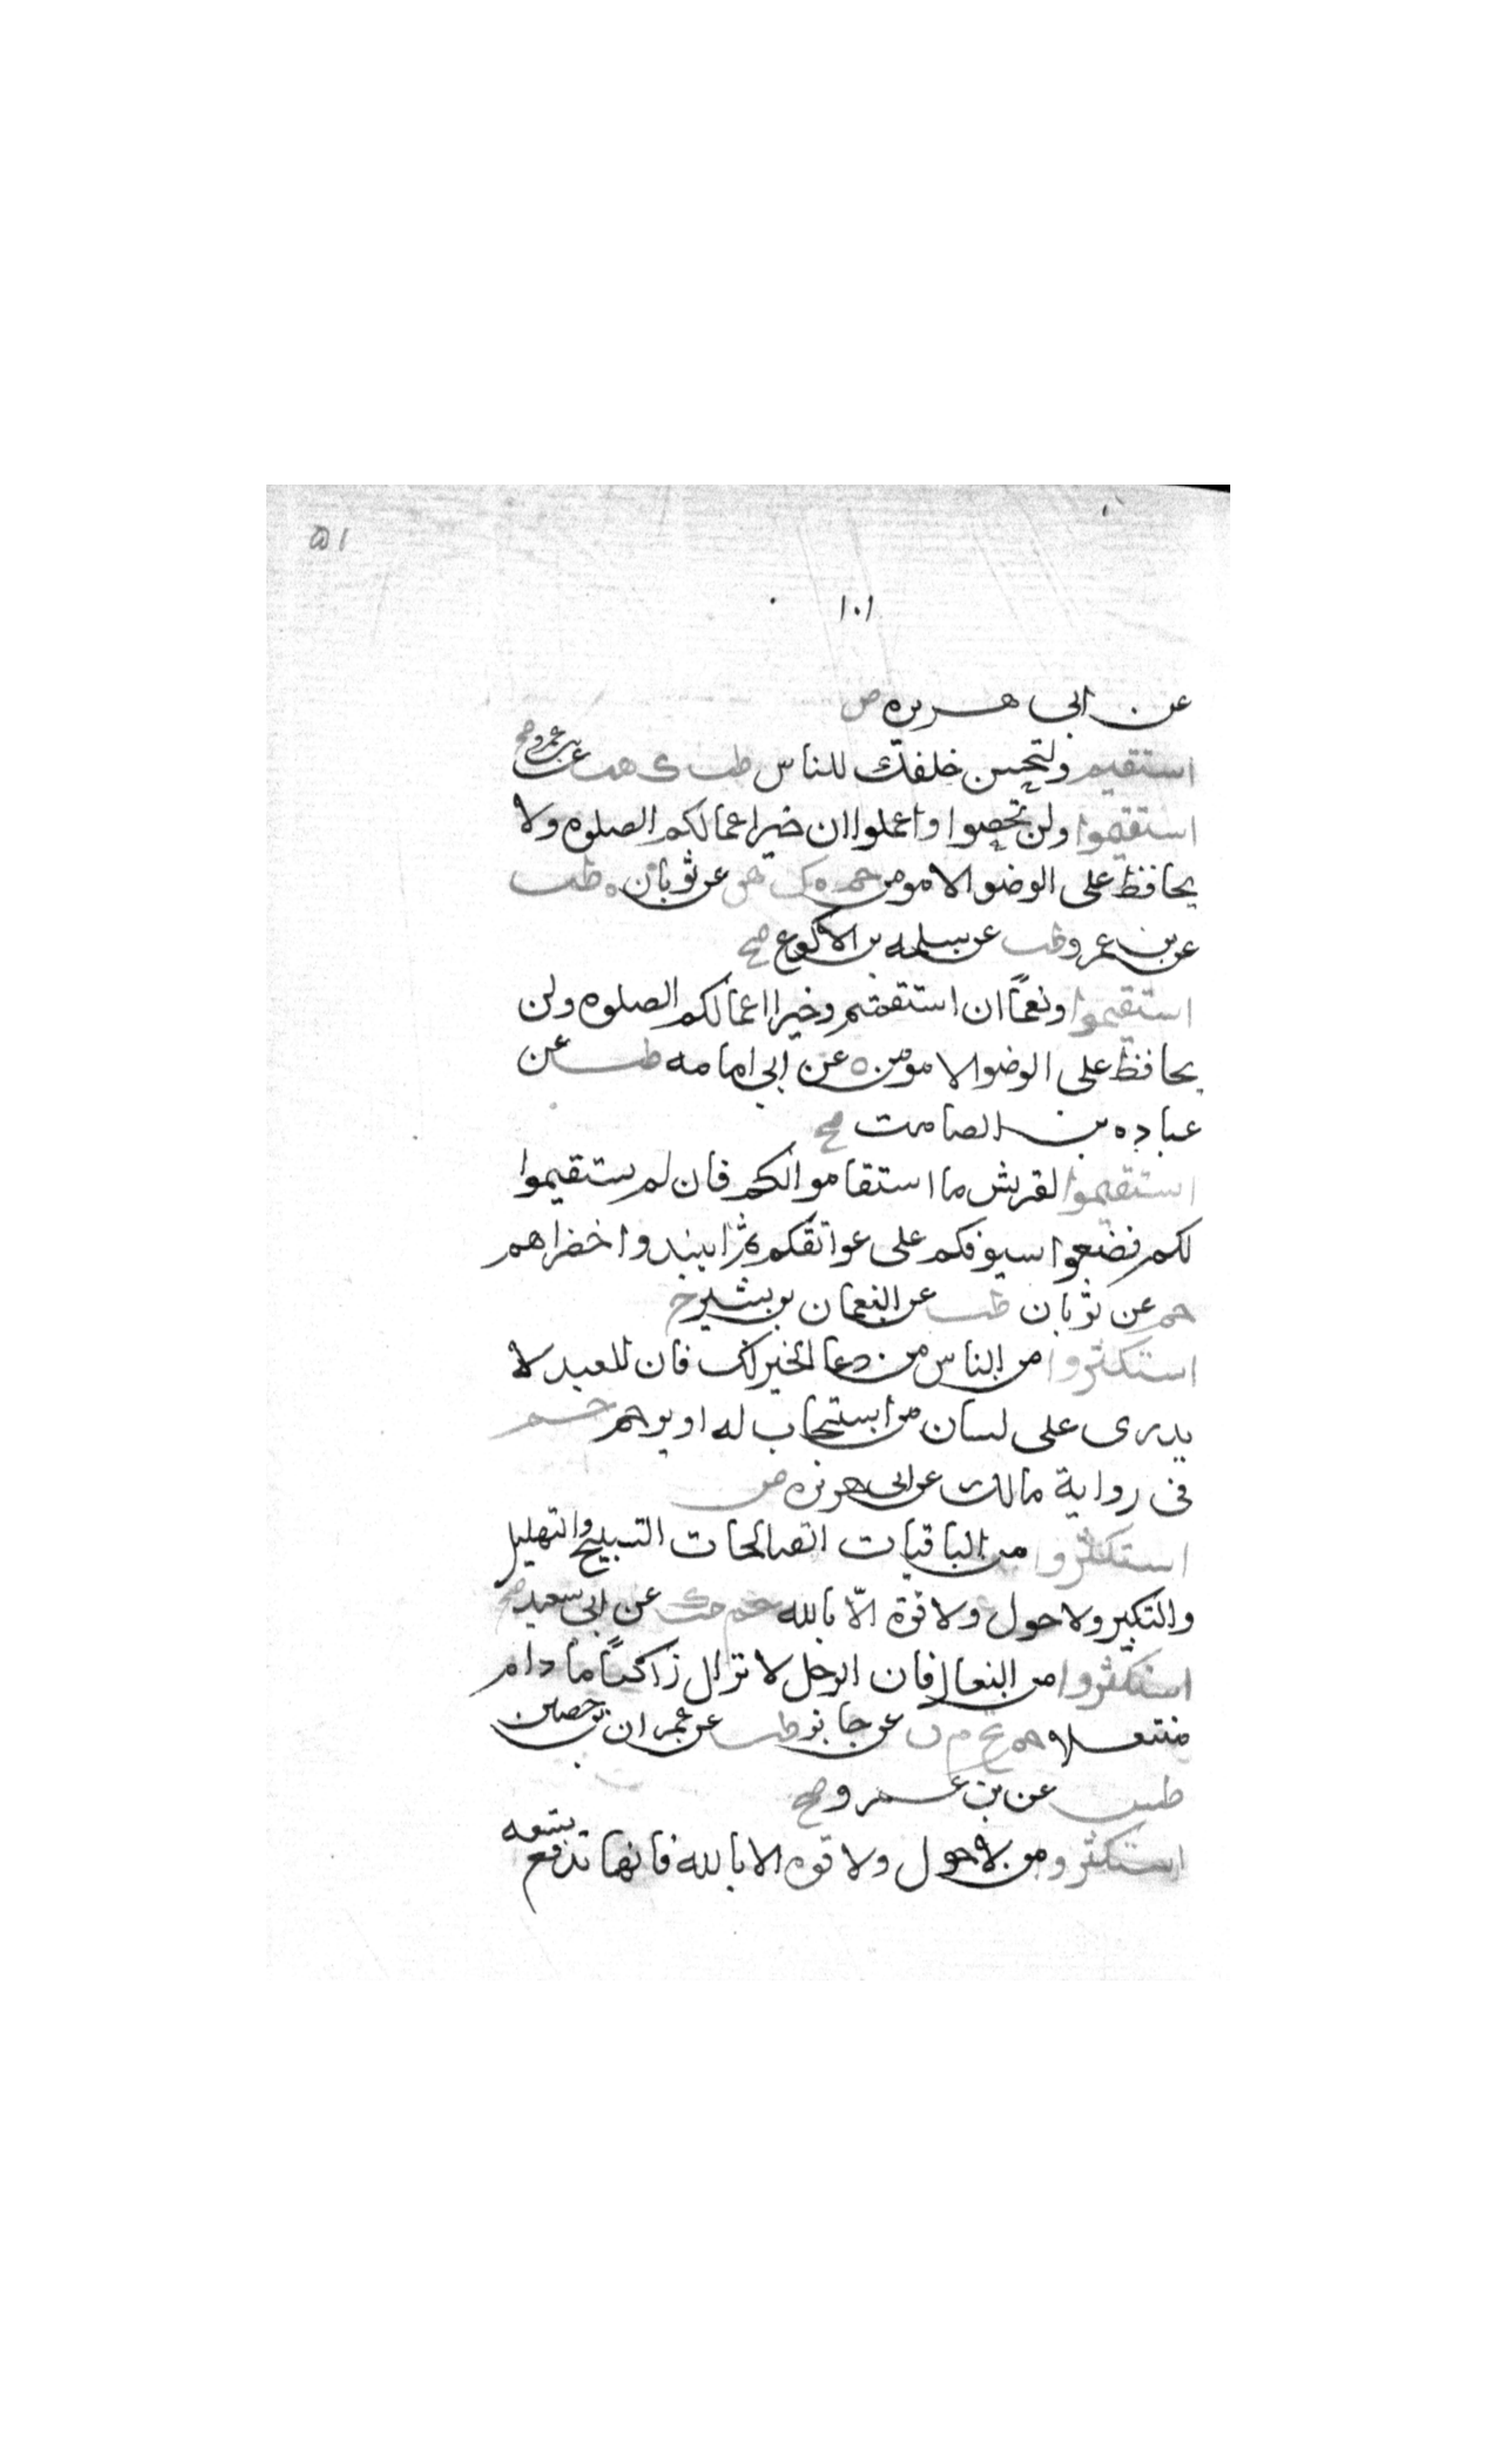 ٥١
١٠١
عن ابى هريره ض
استقيم ولتحسن خلقك للناس طب ك هب عن بن عمرو صح
استقيموا ولن تحصوا واعملوا ان خير اعمالكم الصلوه ولا
يحافظ على الوضو الا مومن حم ه ك هق عن ثوبان ه طب
عن بن عمرو طب عن سلمه بن الاكوع صح
استقيموا ونعمّا ان استقمتم وخير اعمالكم الصلوه ولن
يحافظ على الوضو الا مومن ه عن ابى امامه طب عن
عباده بن الصامت صح
استقيموا لقريش ما استقاموا لكم فان لم يستقيموا
لكم فضعوا سيوفكم على عواتقكم ثم ابيدوا خضراهم
حم عن ثوبان طب عن النعمان بن بشير ح
استكثروا من الناس من دعا الخير لك فان العبد لا
يدرى على لسان من يستجاب له او يرحم خـط
فى رواية مالك عن ابى هريره ض
استكثروا من الباقيات الصالحات التسبيح والتهليل
والتكبير ولا حول ولا قوة الّا بالله حم حب ك عن ابى سعيد صح
استكثروا من النعال فان الرجل لا تزال راكبًا ما دام
منتعلا حم تخ م ن عن جابر طب عن عمران بن حصين
طس عن بن عمرو صح
استكثروا من لا حول ولا قوه الا بالله فانها تدفع تسعه